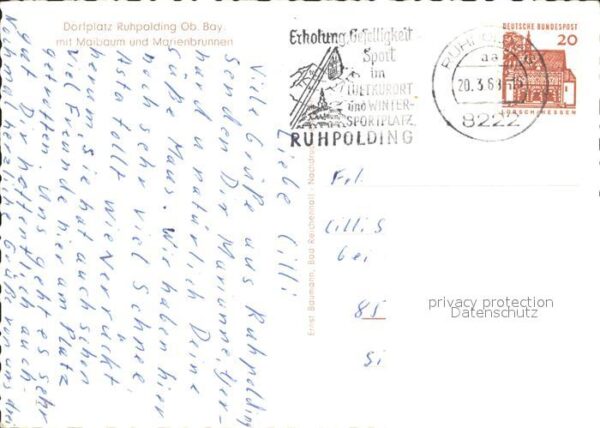 Dorfplatz Ruhpolding Ob. Bay.
mit Maibaum und Marienbrunnen
Erholung, Geselligkeit
Sport
im
LUFTKURORT
und WINTER-
SPORTPLATZ
RUHPOLDING
RUHPOLDING
aa
20.3.68
8222
DEUTSCHE BUNDESPOST
20
LORSCH/HESSEN
Liebe Cilli
Viel Grüße aus Ruhpolding
Senden Dir Marianne,
hard u natürlich Deine
süße Maus. Wir haben hier
noch sehr viel Schnee.
Asta tollt wie verrückt
herum sie hat auch schon
viel Freunde hier am Platz
getroffen. Uns geht es sehr
gut Dir hoffentlich auch.
Ernst Baumann, Bad Reichenhall
Frl.
Cilli S
bei
85
Si
privacy protection
Datenschutz